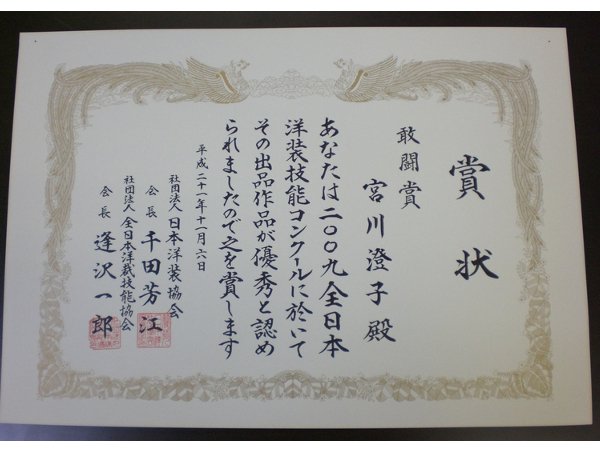 賞状
敢闘賞
宮川澄子殿
あなたは二〇〇九全日本
洋装技能コンクールに於いて
その出品作品が優秀と認め
られましたので之を賞します
平成二十一年十一月六日
社団法人日本洋装協会
会長千田芳江
社団法人全日本洋裁技能協会
会長逢沢一郎